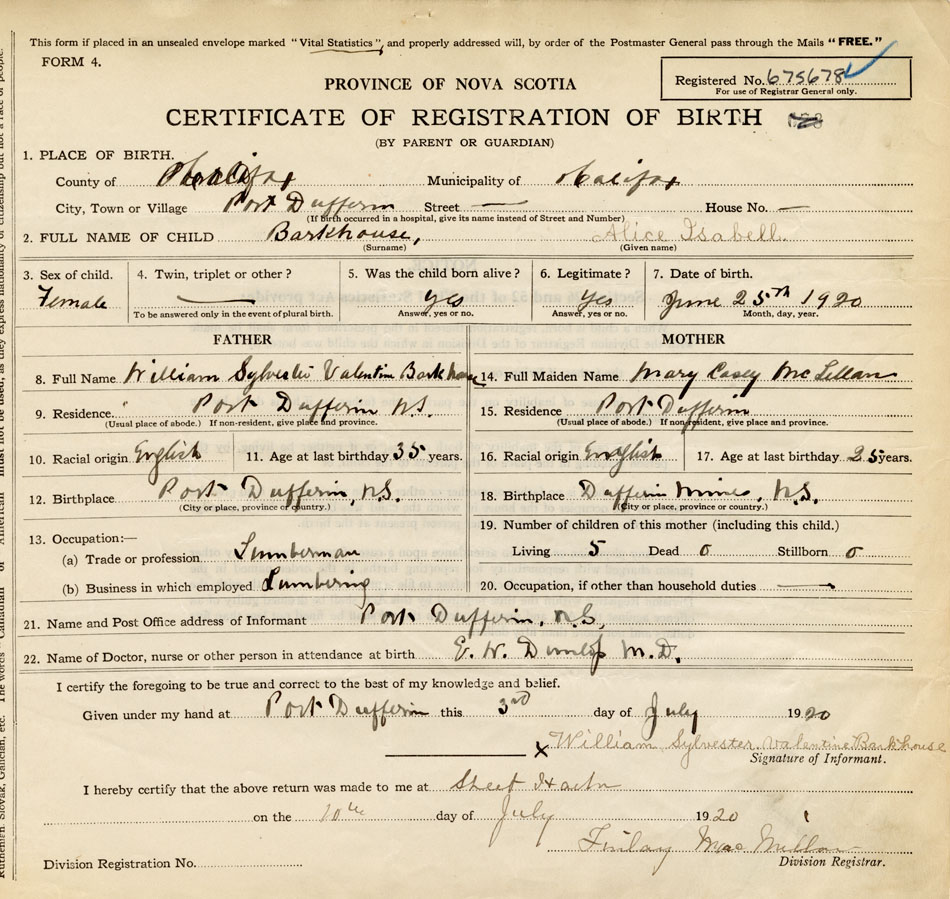 This form if placed in an unsealed envelope marked "Vital Statistics", and properly addressed will, by order of the Postmaster General pass through the Mails "FREE."
FORM 4.
Registered No. 675678
For use of Registrar General only.
PROVINCE OF NOVA SCOTIA
CERTIFICATE OF REGISTRATION OF BIRTH
(BY PARENT OR GUARDIAN)
1. PLACE OF BIRTH.
County of Halifax Municipality of Halifax
City, Town or Village Port Dufferin Street — House No. —
(If birth occurred in a hospital, give its name instead of Street and Number)
2. FULL NAME OF CHILD Barkhouse, Alice Isabell
(Surname) (Given name)
3. Sex of child. 4. Twin, triplet or other? 5. Was the child born alive? 6. Legitimate? 7. Date of birth.
Female — yes Yes June 25th 1920
To be answered only in the event of plural birth. Answer, yes or no. Answer, yes or no. Month, day, year.
FATHER MOTHER
8. Full Name William Sylvester Valentine Barkhouse 14. Full Maiden Name Mary Casey McLellan
9. Residence. Port Dufferin N.S. 15. Residence Port Dufferin
(Usual place of abode.) If non-resident, give place and province. (Usual place of abode.) If non-resident, give place and province.
10. Racial origin English 11. Age at last birthday 35 years. 16. Racial origin English 17. Age at last birthday 25 years.
12. Birthplace Port Dufferin, N.S. 18. Birthplace Dufferin Mines, N.S.
(City or place, province or country.) (City or place, province or country.)
13. Occupation:— 19. Number of children of this mother (including this child.)
(a) Trade or profession Lumberman Living 5 Dead 0 Stillborn 0
(b) Business in which employed Lumbering 20. Occupation, if other than household duties —
21. Name and Post Office address of Informant Port Dufferin, N.S.,
22. Name of Doctor, nurse or other person in attendance at birth E. W. Dunlop M.D.
I certify the foregoing to be true and correct to the best of my knowledge and belief.
Given under my hand at Port Dufferin this 3rd day of July 1920
x William Sylvester Valentine Barkhouse
Signature of Informant.
I hereby certify that the above return was made to me at Sheet Harbor
on the 10th day of July 1920
Finlay MacMillan
Division Registration No. Division Registrar.